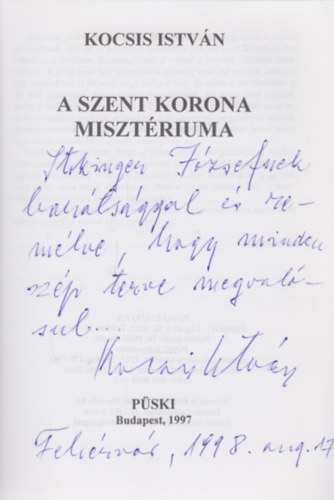 KOCSIS ISTVÁN
A SZENT KORONA
MISZTÉRIUMA
Józsefnek
barátsággal és re-
mélve, hogy minden
szép terve megvaló-
sul.
Kocsis István
PÜSKI
Budapest, 1997
Fehérvár, 1998. aug. 17